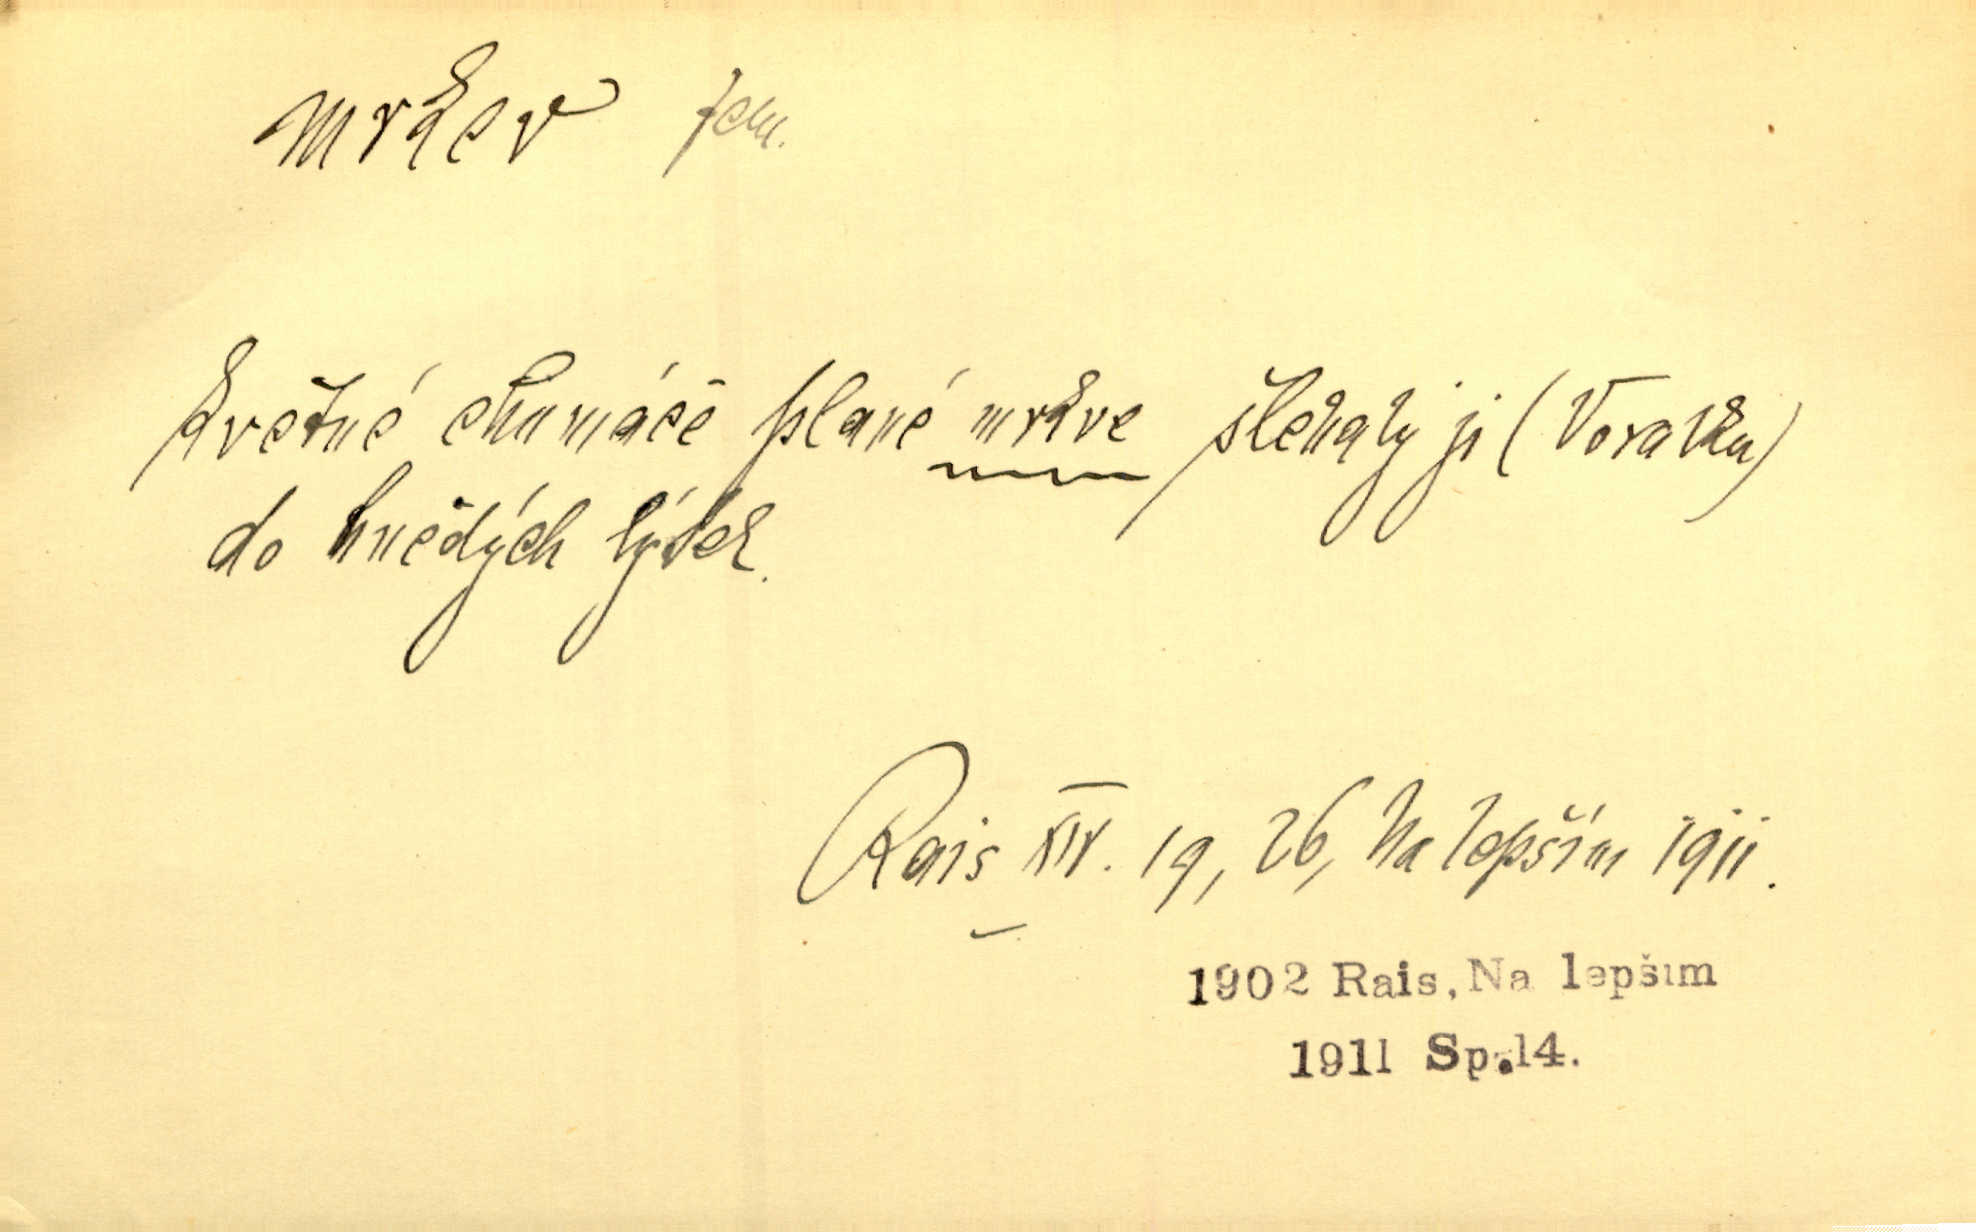 mrkev fem.
Květné chumáče plané mrkve šlehaly ji (Voralku)
do hnědých lýtek.
Rais XIV. 19, 26, Na lepším 1911.
1902 Rais, Na lepším
1911 Sp.14.